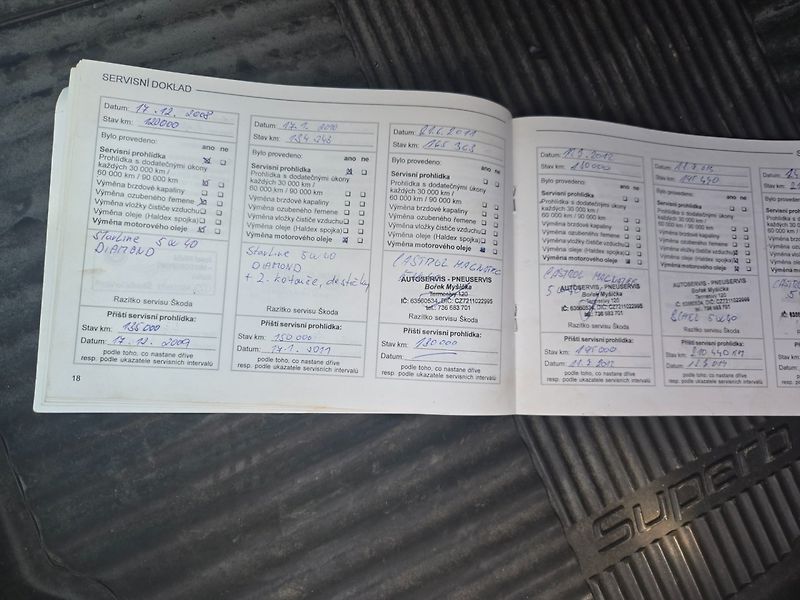 SERVISNÍ DOKLAD
Datum: 17.12. 2008
Stav km: 120000
Bylo provedeno:
ano ne
Servisní prohlídka
Prohlídka s dodatečnými úkony
každých 30 000 km /
60 000 km / 90 000 km
Výměna brzdové kapaliny
Výměna ozubeného řemene
Výměna vložky čističe vzduchu
Výměna oleje (Haldex spojka)
Výměna motorového oleje
Starline 5W40
DIAMOND
Razítko servisu Škoda
Příští servisní prohlídka:
Stav km: 135000
Datum: 17.12.2009
podle toho, co nastane dříve
resp. podle ukazatele servisních intervalů
18
Datum: 17.1. 2010
Stav km:
Bylo provedeno:
ano ne
Servisní prohlídka
Prohlídka s dodatečnými úkony
každých 30 000 km /
60 000 km / 90 000 km
Výměna brzdové kapaliny
Výměna ozubeného řemene
Výměna vložky čističe vzduchu
Výměna oleje (Haldex spojka)
Výměna motorového oleje
Starline 5W40
DIAMOND
+ 2. kotouče, destičky
Razítko servisu Škoda
Příští servisní prohlídka:
Stav km: 150 000
Datum: 17.1. 2011
podle toho, co nastane dříve
resp. podle ukazatele servisních intervalů
Datum:
Stav km: 165 363
Bylo provedeno:
ano ne
Servisní prohlídka
Prohlídka s dodatečnými úkony
každých 30 000 km /
60 000 km / 90 000 km
Výměna brzdové kapaliny
Výměna ozubeného řemene
Výměna vložky čističe vzduchu
Výměna oleje (Haldex spojka)
Výměna motorového oleje
CASTROL MAGNATEC
AUTOSERVIS - PNEUSERVIS
Bořek Myšička
IČ: 63560534, DIČ: CZ7211022995
tel.: 736 683 701
Razítko servisu Škoda
Příští servisní prohlídka:
Stav km: 180000
Datum:
podle toho, co nastane dříve
resp. podle ukazatele servisních intervalů
Datum: 11.9.2012
Stav km:
Bylo provedeno:
ano ne
Servisní prohlídka
Prohlídka s dodatečnými úkony
každých 30 000 km /
60 000 km / 90 000 km
Výměna brzdové kapaliny
Výměna ozubeného řemene
Výměna vložky čističe vzduchu
Výměna oleje (Haldex spojka)
Výměna motorového oleje
CASTROL MAGNATEC
AUTOSERVIS - PNEUSERVIS
Bořek Myšička
IČ: 63560534, DIČ: CZ7211022995
tel.: 736 683 701
Razítko servisu Škoda
Příští servisní prohlídka:
Stav km: 195000
Datum:
podle toho, co nastane dříve
resp. podle ukazatele servisních intervalů
Datum:
Stav km: 195 440
Bylo provedeno:
ano ne
Servisní prohlídka
Prohlídka s dodatečnými úkony
každých 30 000 km /
60 000 km / 90 000 km
Výměna brzdové kapaliny
Výměna ozubeného řemene
Výměna vložky čističe vzduchu
Výměna oleje (Haldex spojka)
Výměna motorového oleje
AUTOSERVIS - PNEUSERVIS
Bořek Myšička
5W40
Razítko servisu Škoda
Příští servisní prohlídka:
Stav km: 210 440 KM
Datum:
podle toho, co nastane dříve
resp. podle ukazatele servisních intervalů
Superb